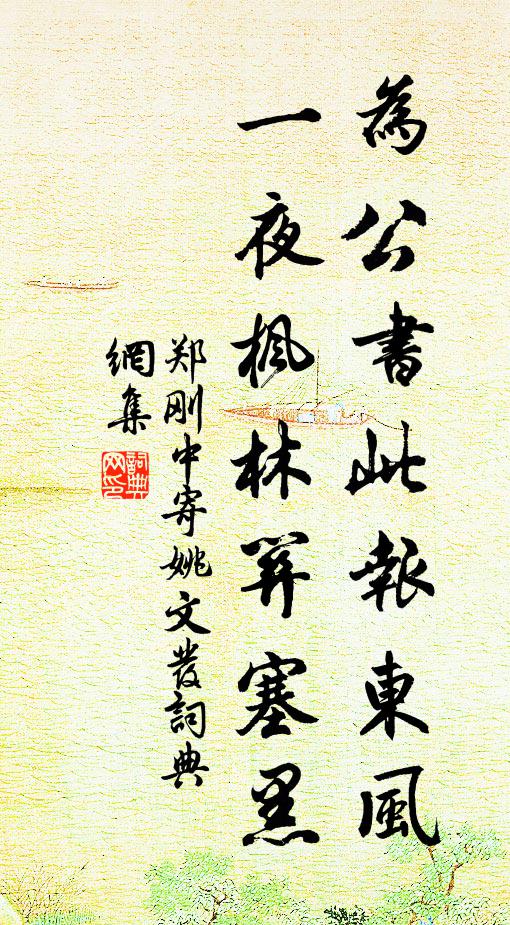 為公書此報東風
一夜楓林羿塞黑
郑刚中寄姚文發詞典
網集
詞典网印